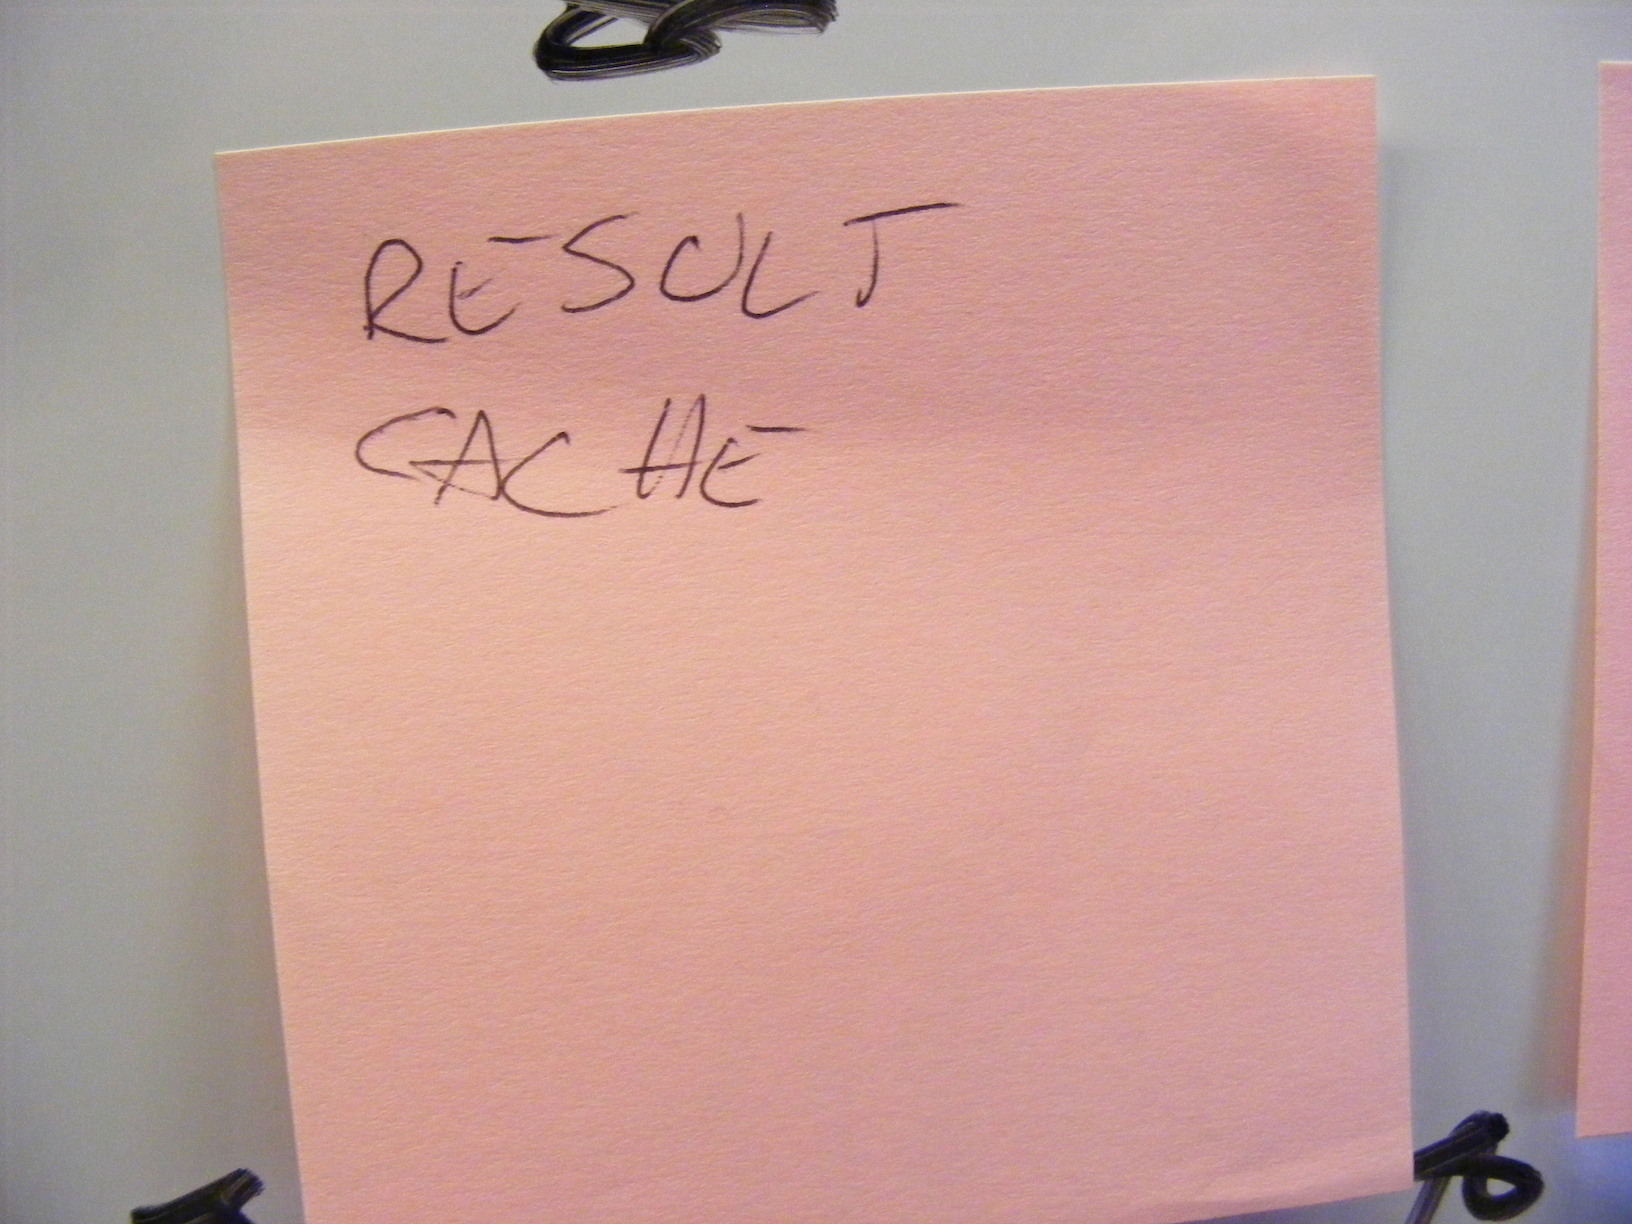 RESULT
CACHE